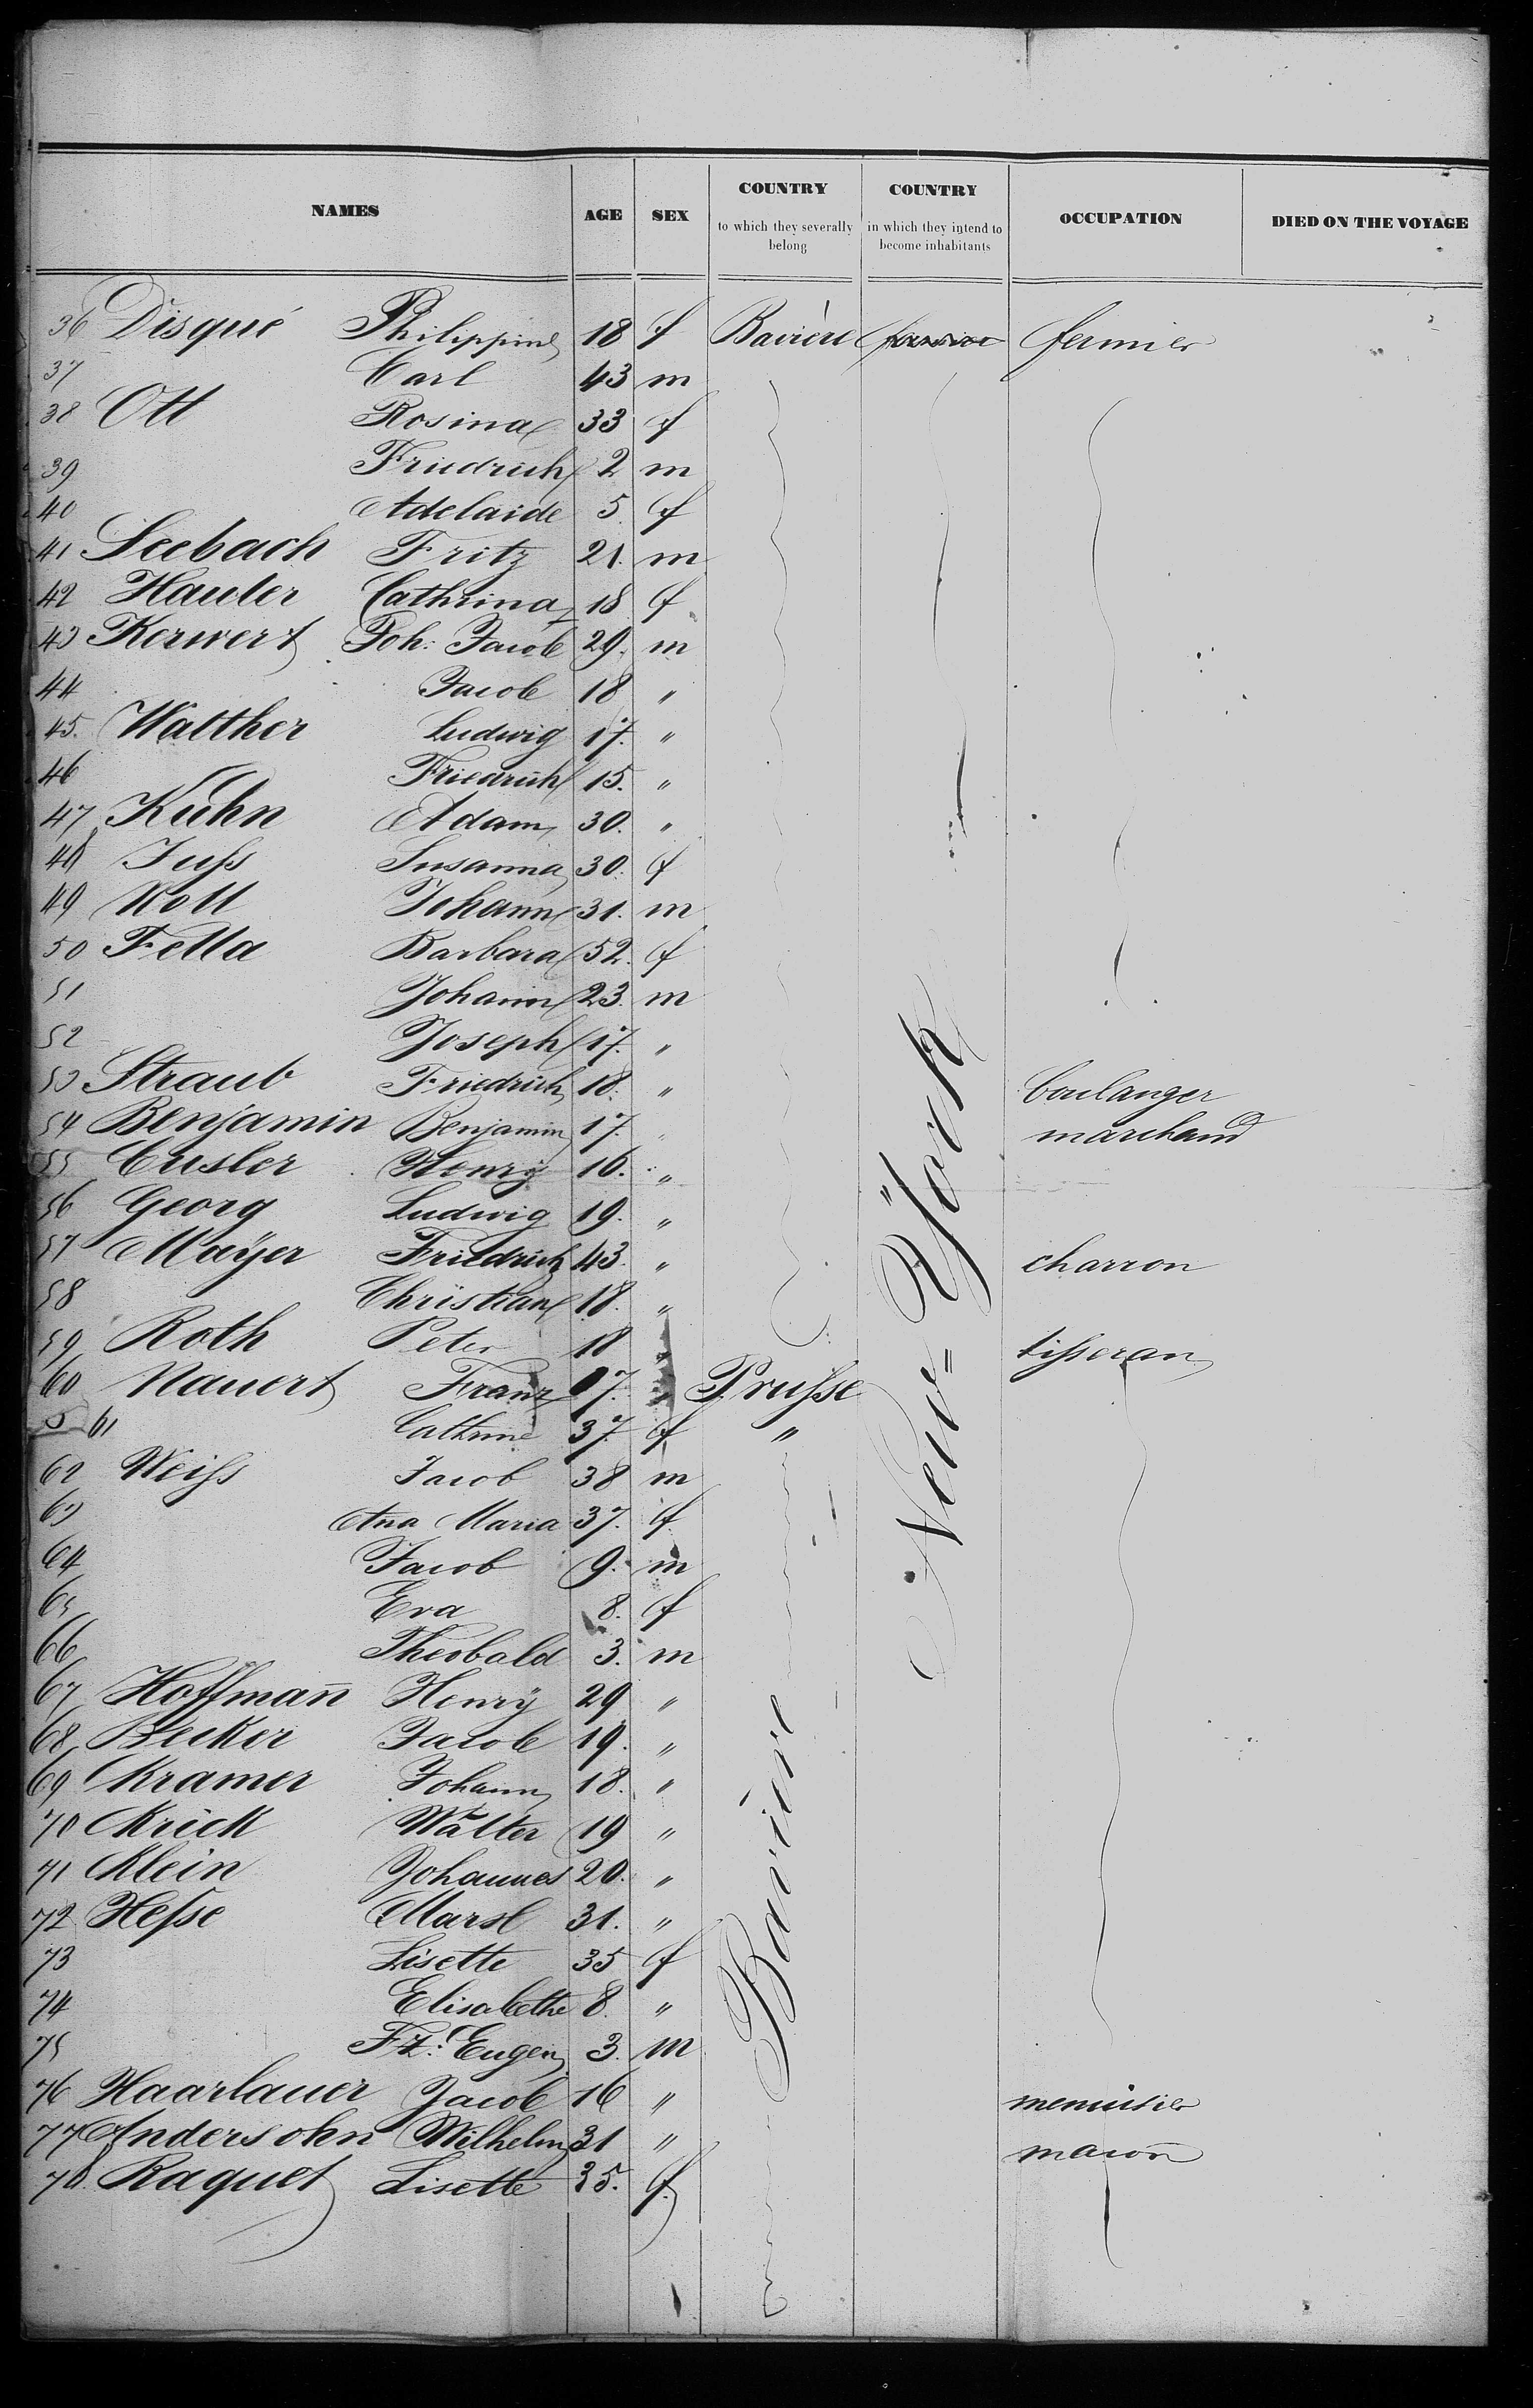 NAMES AGE SEX COUNTRY to which they severally belong COUNTRY in which they intend to become inhabitants OCCUPATION DIED ON THE VOYAGE
36 Disqué Philippine 18 f Bavière fermier
37 Carl 43 m
38 Ott Rosina 33 f
39 Friedrich 2 m
40 Adelaide 5 f
41 Seebach Fritz 21. m
42 Hauter Cathrina 18 f
43 Kerwert Joh: Jacob 29. m
44 Jacob 18 "
45. Walther Ludwig 17. "
46 Friedrich 15. "
47 Kuhn Adam 30. "
48 Juſs Susanna 30. f
49 Woll Johann 31. m
50 Fella Barbara 52. f
51 Johann 23. m
52 Joseph 17. "
53 Straub Friedrich 18. " boulanger
54 Benjamin Benjamin 17. " marchand
55 Cusler Henrÿ 16. "
56 Georg Ludwig 19. "
57 Maÿer Friedrich 43. " charron
58 Christian 18. "
59 Roth Peter 18 " tiſseran
60 Nauert Franz 17. " Pruſse
61 Cathrine 37. f "
62 Weiſs Jacob 38 m
63 Ana Maria 37. f
64 Jacob 9. m
65 Eva 8. f
66 Theobald 3. m
67 Hoffmañ Henrÿ 29 "
68 Becker Jacob 19. "
69 Kramer Johann 18. "
70 Krick Walter 19 "
71 Klein Johannes 20. "
72 Heſse 31. "
73 Lisette 35 f
74 Elisabethe 8. "
75 Fz: Eugen 3. m
76 Haarlauer Jacob 16 " menuisier
77 Andersohn Wilhelm 31 " macon
78. Raquet Lisette 35. f
Bavière
New=Ÿork